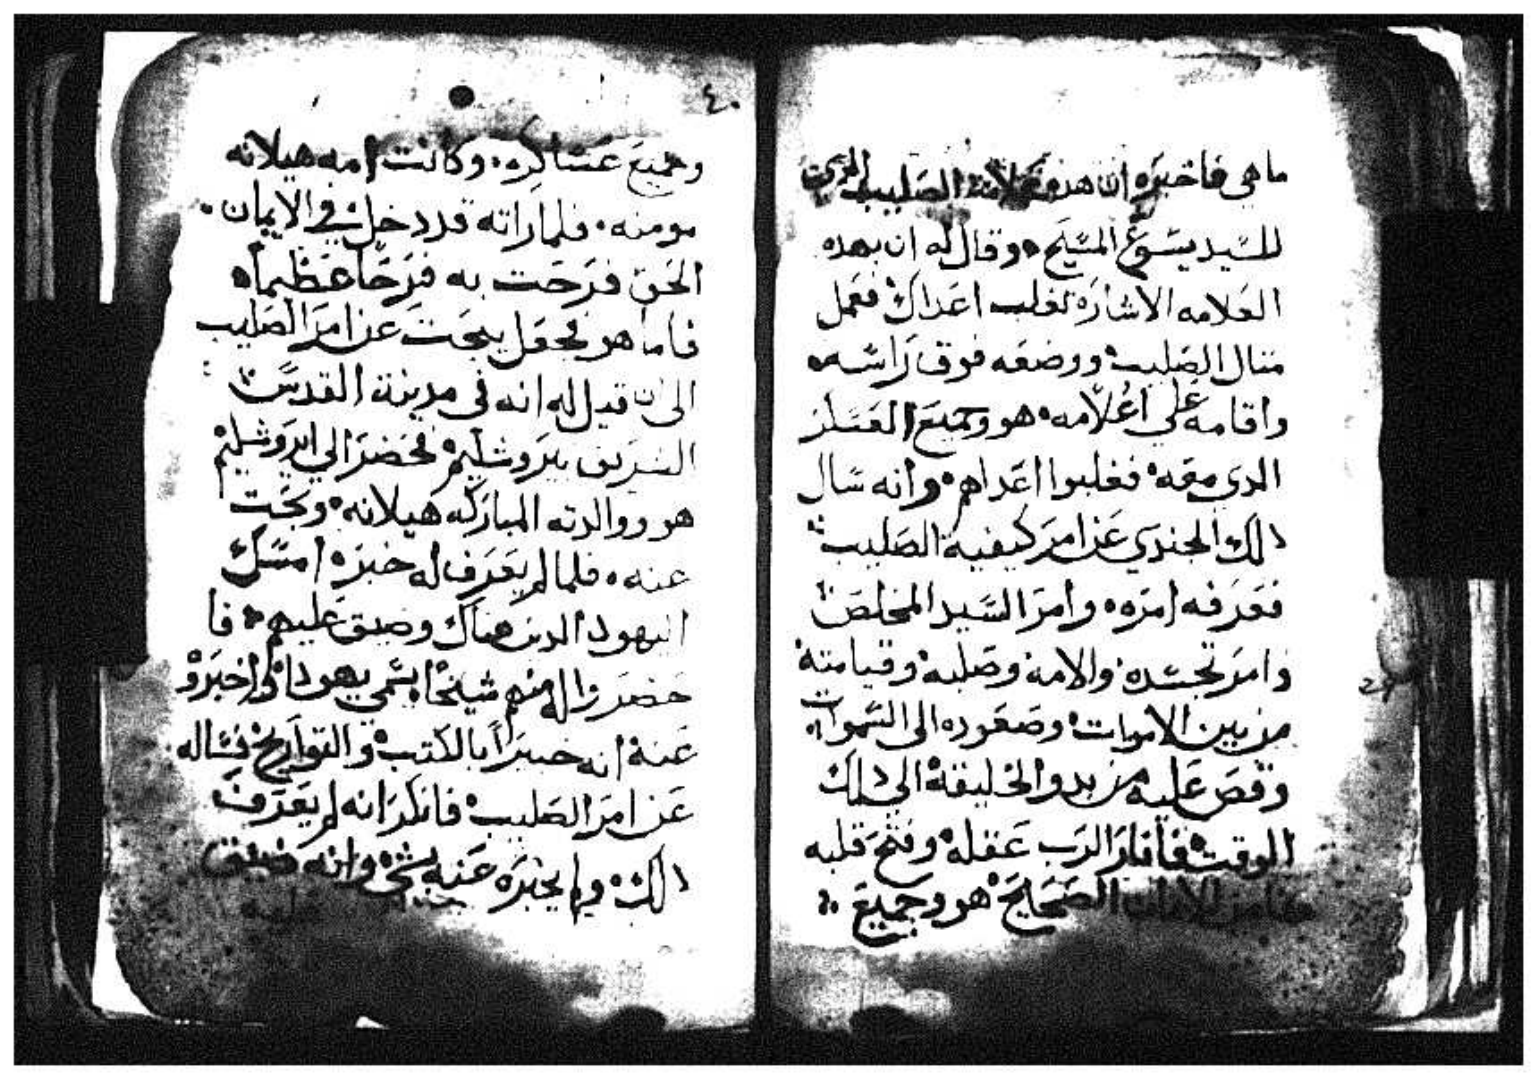 ما هي فاخبره ان هده علامة الصليب الدي
للسيد يسوع المسيح وقال له ان بهده
العلامه الاشاره تغلب اعداك فعمل
متال الصليب ووضعه فوق راسه
واقامه علي اعلامه هو وجميع العسكر
الدي معه فغلبوا اعداهم وانه سال
دلك الجندي عن امر كيفية الصليب
فعرفه امره وامر السيد المخلص
وامر تجسده والامه وصلبه وقيامته
من بين الاموات وصعوده الى السموات
وقص عليه من بدو الخليقة الي دلك
الوقت فأنار الرب عقله وفتح قلبه
فامن الصحيح هو وجميع
٤٠
وجميع عساكره وكانت امه هيلانه
مومنه فلما راته قد دخل في الايمان
الحق فرحت به فرحاً عظيماً
فاما هو فجعل يبحت عن امر الصليب
الى ان قيل له انه في مدينة القدس
الشريف يروشليم فحضر الي ايروشليم
هو ووالدته المباركه هيلانه وبحت
عنه فلما لم يعرف له خبره امسك
اليهود الدين هناك وضيق عليهم فا
حضروا له منهم شيخاً يسمي يهودا واخبروا
عنه انه خبيراً بالكتب والتواريخ فساله
عن امر الصليب فانكر انه لم يعرف
دلك ولم يخبره عنه بشي وانه ضيق
عليه